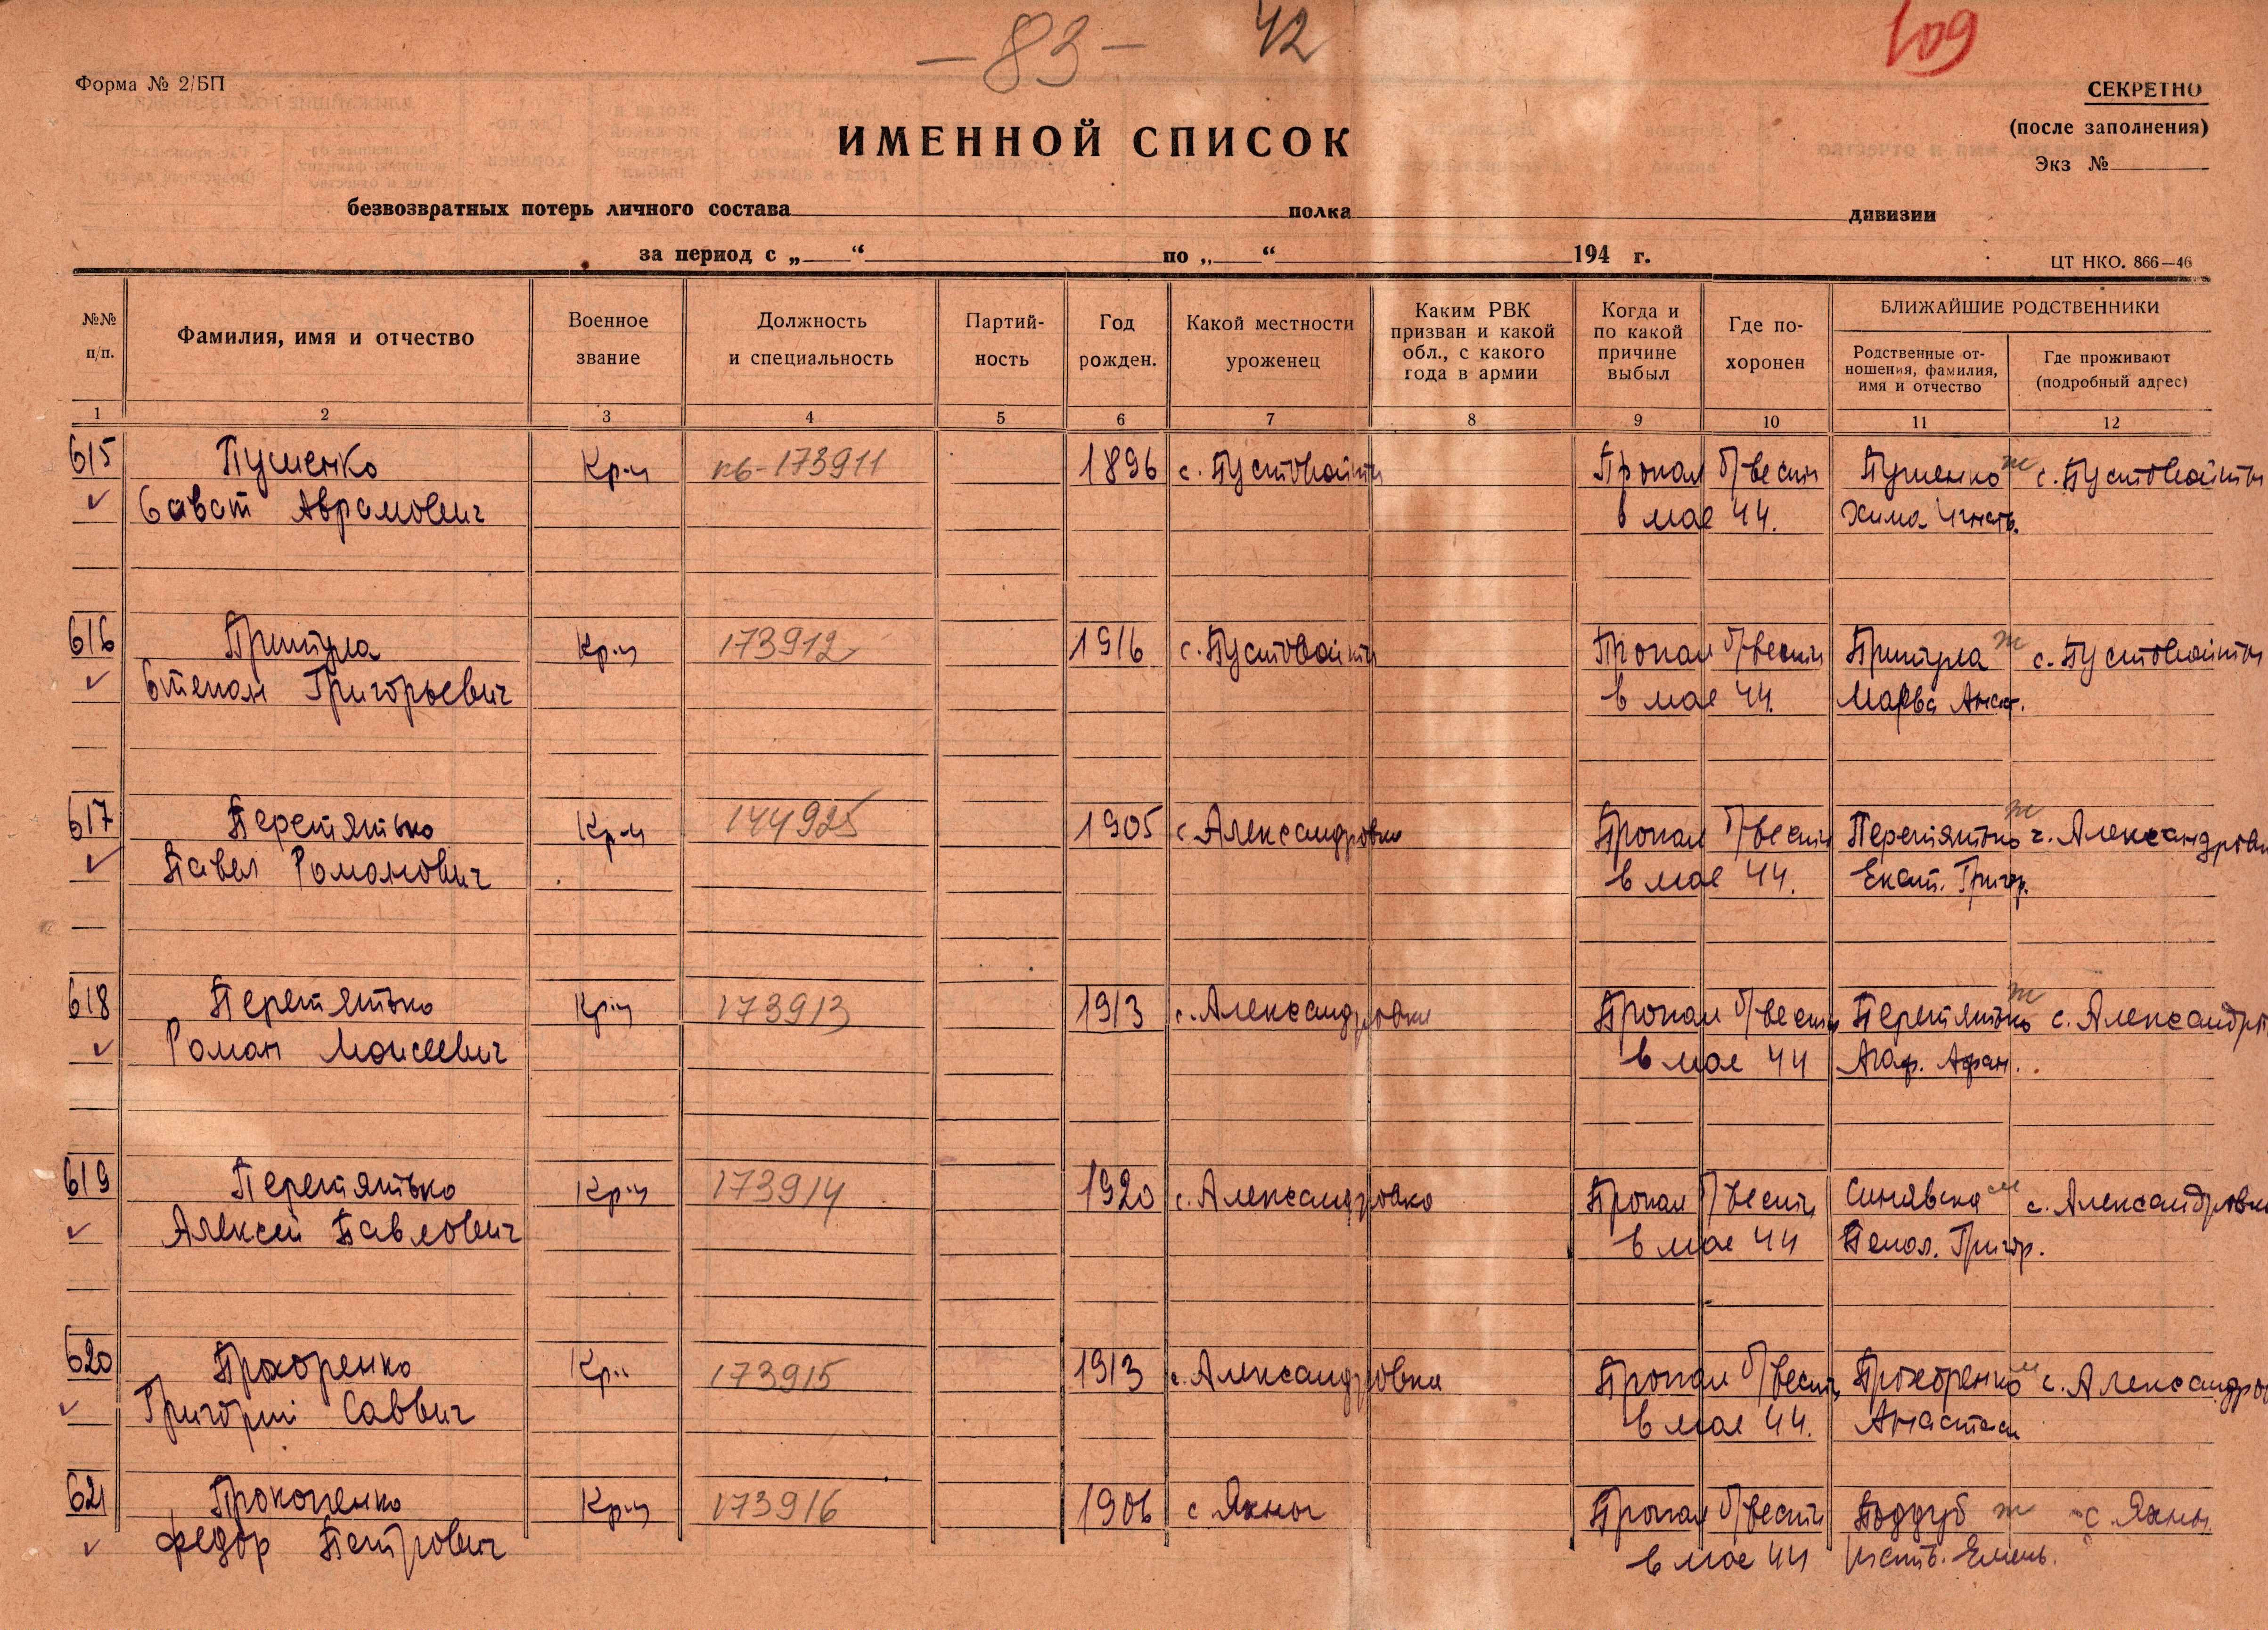 — 83 — 42 109
Форма № 2/БП
СЕКРЕТНО
(после заполнения)
Экз №
ИМЕННОЙ СПИСОК
безвозвратных потерь личного состава полка дивизии
за период с „ “ по „ “ 194 г.
ЦТ НКО. 866—46
№№ п/п.
Фамилия, имя и отчество
Военное звание
Должность и специальность
Партий-ность
Год рожден.
Какой местности уроженец
Каким РВК призван и какой обл., с какого года в армии
Когда и по какой причине выбыл
Где по-хоронен
БЛИЖАЙШИЕ РОДСТВЕННИКИ
Родственные от-ношения, фамилия, имя и отчество
Где проживают (подробный адрес)
1 2 3 4 5 6 7 8 9 10 11 12
615 Пушенко Кр-ц 173911 1896 с. Пустовойты Пропал б/вести Пушенко ж с. Пустовойты
Сават Аврамович в мае 44. Хима
616 Притула Кр-ц 173912 1916 с. Пустовойты Пропал б/вести Притула ж с. Пустовойты
Степан Григорьевич в мае 44. Марва
617 Перетятько Кр-ц 144925 1905 с. Александровка Пропал б/вести Перетятько ж с. Александровк
Павел Романович в мае 44. Екат. Григор.
618 Перетятько Кр-ц 173913 1913 с. Александровка Пропал б/вести Перетятько ж с. Александро
Роман Моисеевич в мае 44 Агаф. Афан.
619 Перетятько Кр-ц 173914 1920 с. Александровка Пропал б/вести Синявска м с. Александровка
Алексей Павлович в мае 44 Григор.
620 Прохоренко Кр-ц 173915 1913 с. Александровка Пропал б/вести Прохоренко м с. Александров
Григорий Саввич в мае 44. Анастаси
621 Прокопенко Кр-ц 173916 1906 с Яхны Пропал б/вести Поддуб ж с Яхны
Федор Петрович в мае 44 Емель.